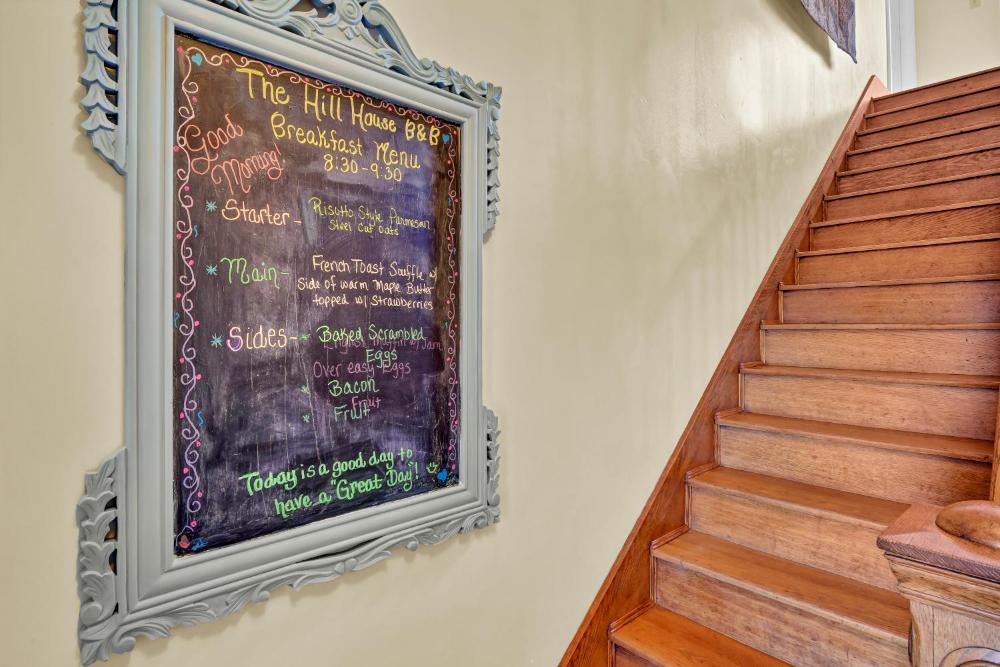 The Hill House B&B
Breakfast Menu
8:30-9:30
Good
Morning!
* Starter - Risotto Style Parmesan
Steel Cut Oats
* Main - French Toast Souffle w/
side of warm Maple Butter
topped w/ Strawberries
* Sides - * Baked Scrambled
English muffin w/ Jam
Eggs
Over easy Eggs
* Bacon
Fruit
* Fruit
Today is a good day to
have a "Great Day"!